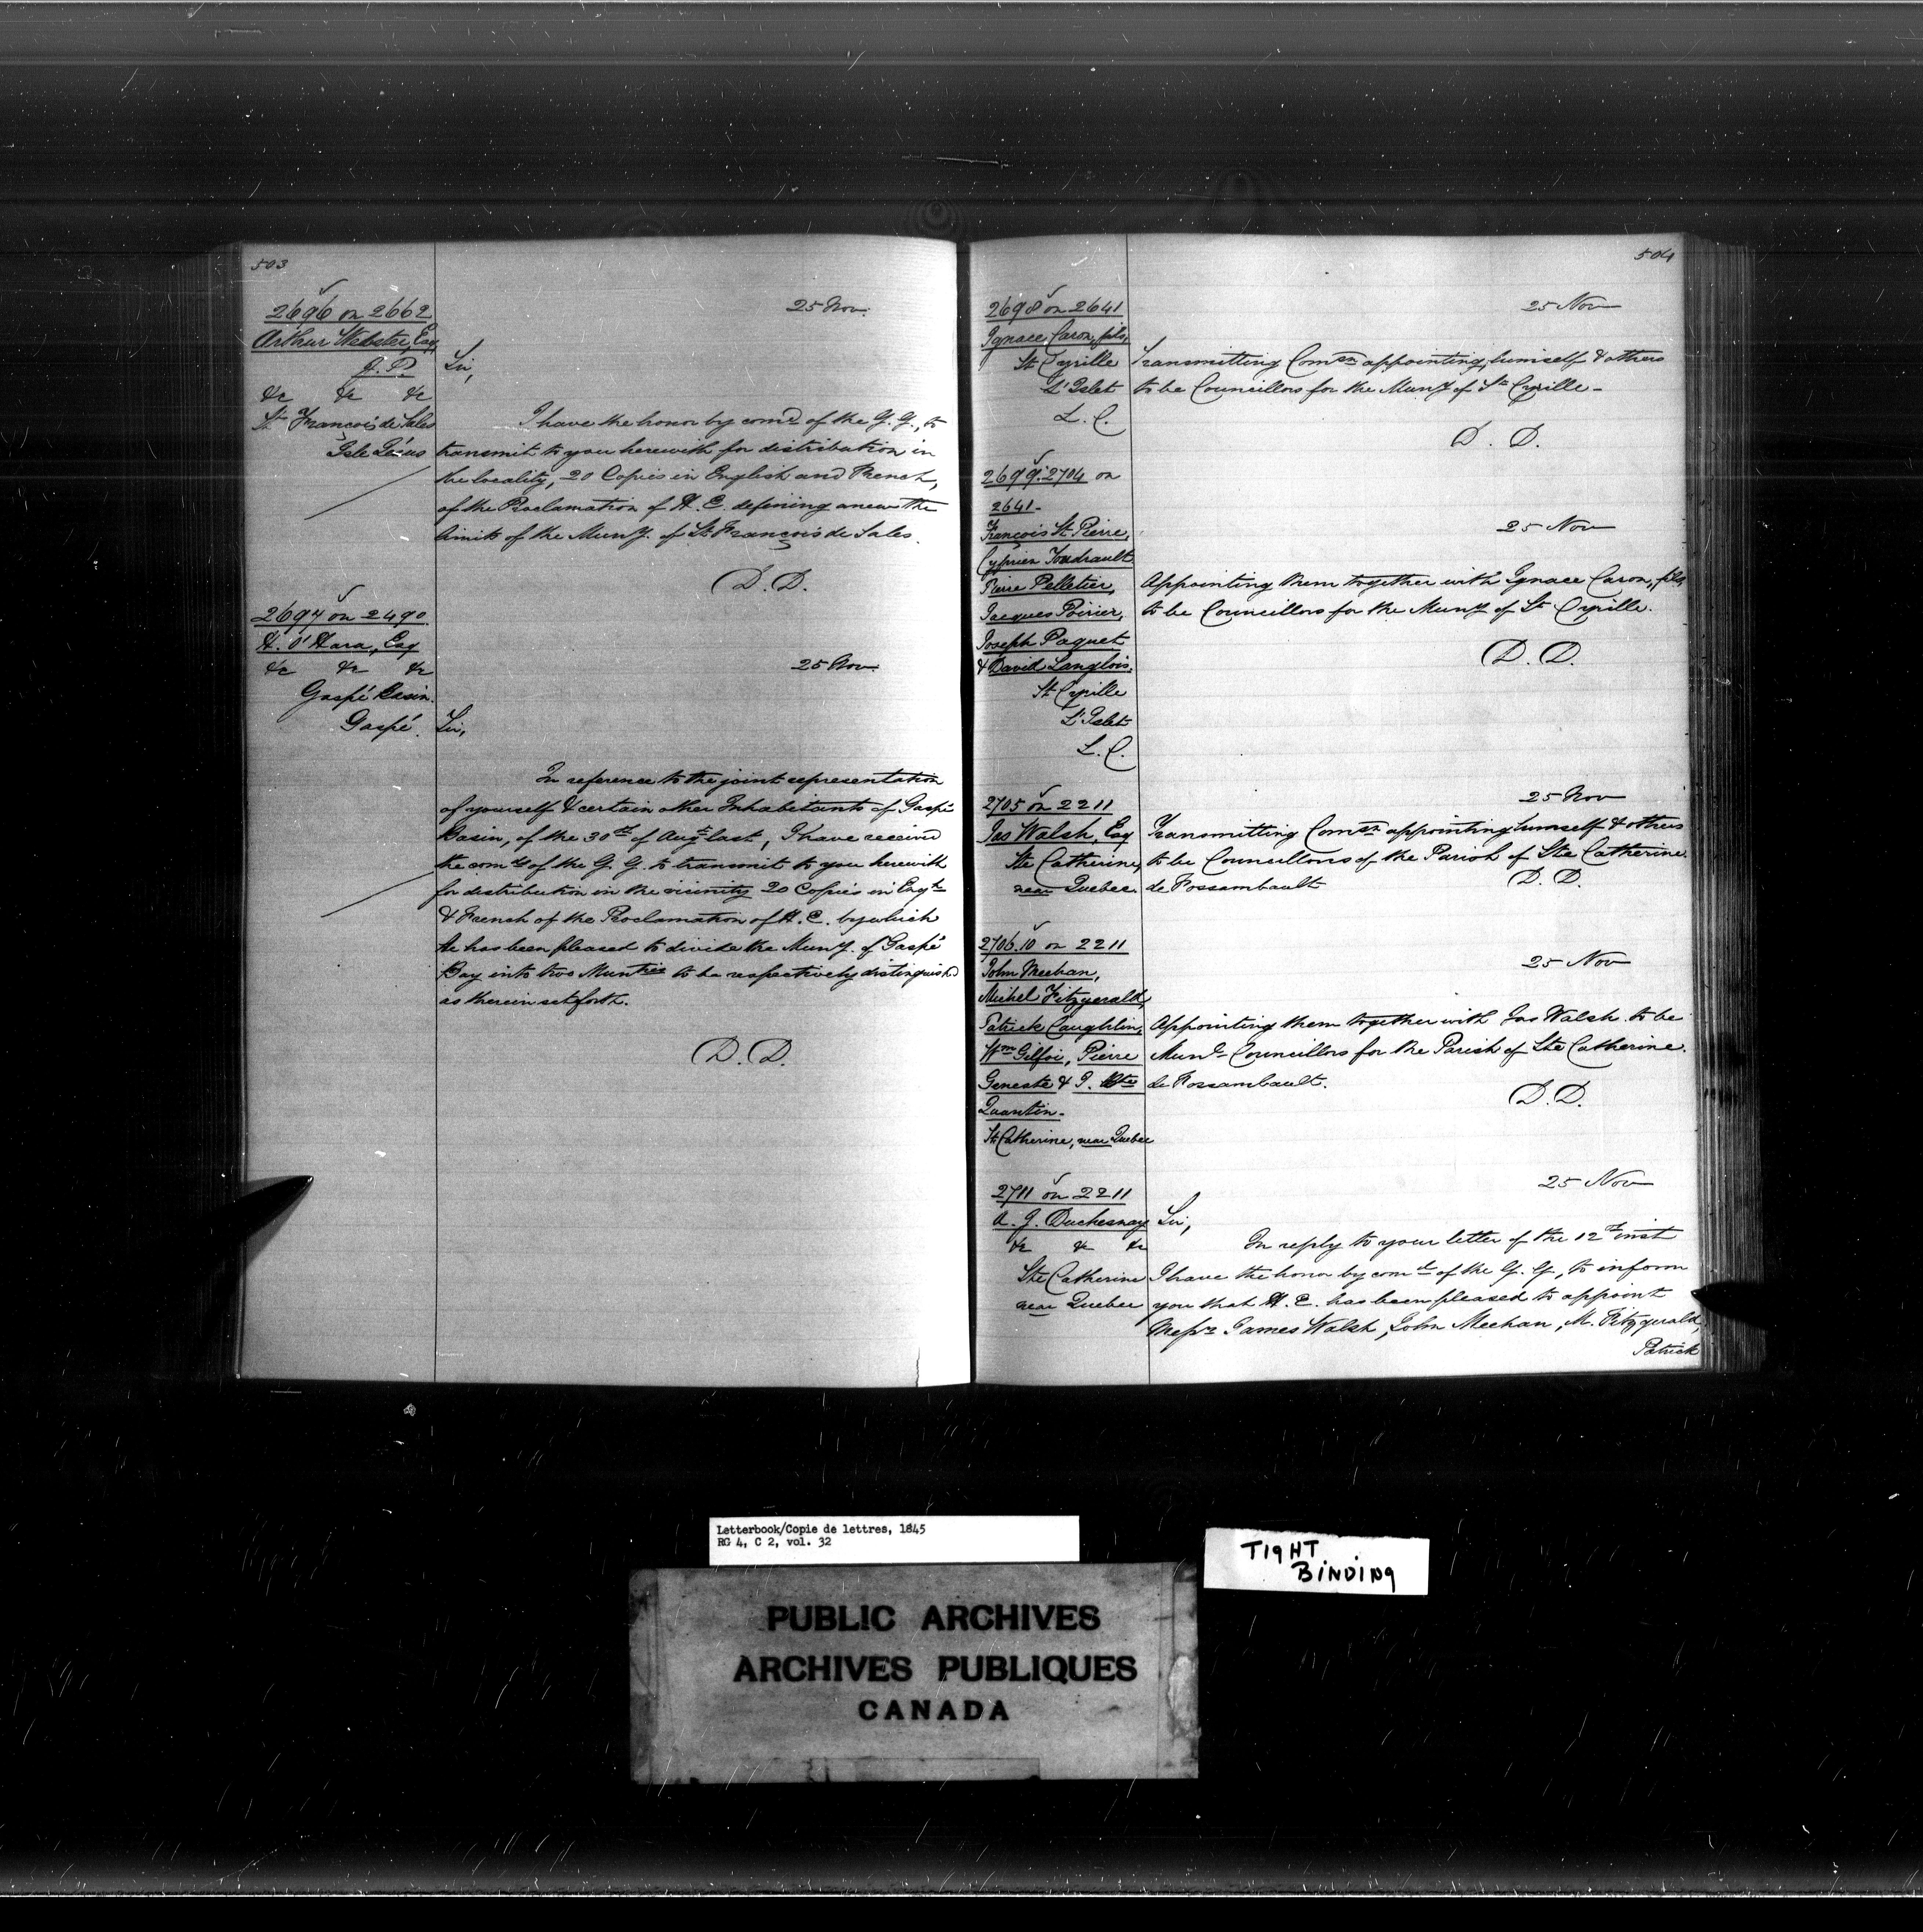 503
2696 on 2662
Arthur Webster, Esq
J. P.
&c &c &c
St François de Sales
Isle Jésus
25 Nov.
Sir,
I have the honor by comd of the G. G., to
transmit to you herewith for distribution in
the locality, 20 Copies in English and French,
of the Proclamation of H. E. defining anew the
limits of the Muny. of St François de Sales.
D. D.
2697 on 2490
H. O'Hara, Esq
&c &c &c
Gaspé Basin.
Gaspé.
25 Nov.
Sir,
In reference to the joint representation
of yourself & certain other Inhabitants of Gaspé
Basin, of the 30th of Augt last, I have received
the comds of the G. G. to transmit to you herewith
for distribution in the vicinity 20 Copies in Engsh
& French of the Proclamation of H. E. by which
He has been pleased to divide the Muny. of Gaspé
Bay into two Munties to be respectively distinguished
as therein set forth.
D. D.
504
2698 on 2641
Ignace Caron, fils,
St Cyrille
L'Islet
L. C.
25 Nov
Transmitting Comsn appointing himself & others
to be Councillors for the Muny of St Cyrille -
D. D.
2699.2704 on
2641 -
François St Pierre,
Cyprien
Pierre Pelletier,
Jacques Poirier,
Joseph Paquet
& David Langlois.
St Cyrille
L'Islet
L. C.
25 Nov
Appointing them together with Ignace Caron, fils,
to be Councillors for the Muny of St Cyrille.
D. D.
2705 on 2211
Jas Walsh, Esq
Ste Catherine,
near Quebec.
25 Nov
Transmitting Comsn appointing himself & others
to be Councillors of the Parish of Ste Catherine
de Fossambault
D. D.
2706.10 on 2211
John Meehan,
Michel Fitzgerald,
Patrick Caughlin,
Wm Gilfoi, Pierre
Geneste & J. Bte
Quantin -
St Catherine, near Quebec
25 Nov
Appointing them together with Jas Walsh to be
Munl Councillors for the Parish of Ste Catherine.
de Fossambault.
D. D.
2711 on 2211
A. J. Duchesnay
&c &c &c
Ste Catherine
near Quebec
25 Nov
Sir,
In reply to your letter of the 12th inst
I have the honor by comd of the G. G., to inform
you that H. E. has been pleased to appoint
Messrs James Walsh, John Meehan, M. Fitzgerald,
Patrick
Letterbook/Copie de lettres, 1845
RG 4, C 2, vol. 32
TIGHT
BINDING
PUBLIC ARCHIVES
ARCHIVES PUBLIQUES
CANADA